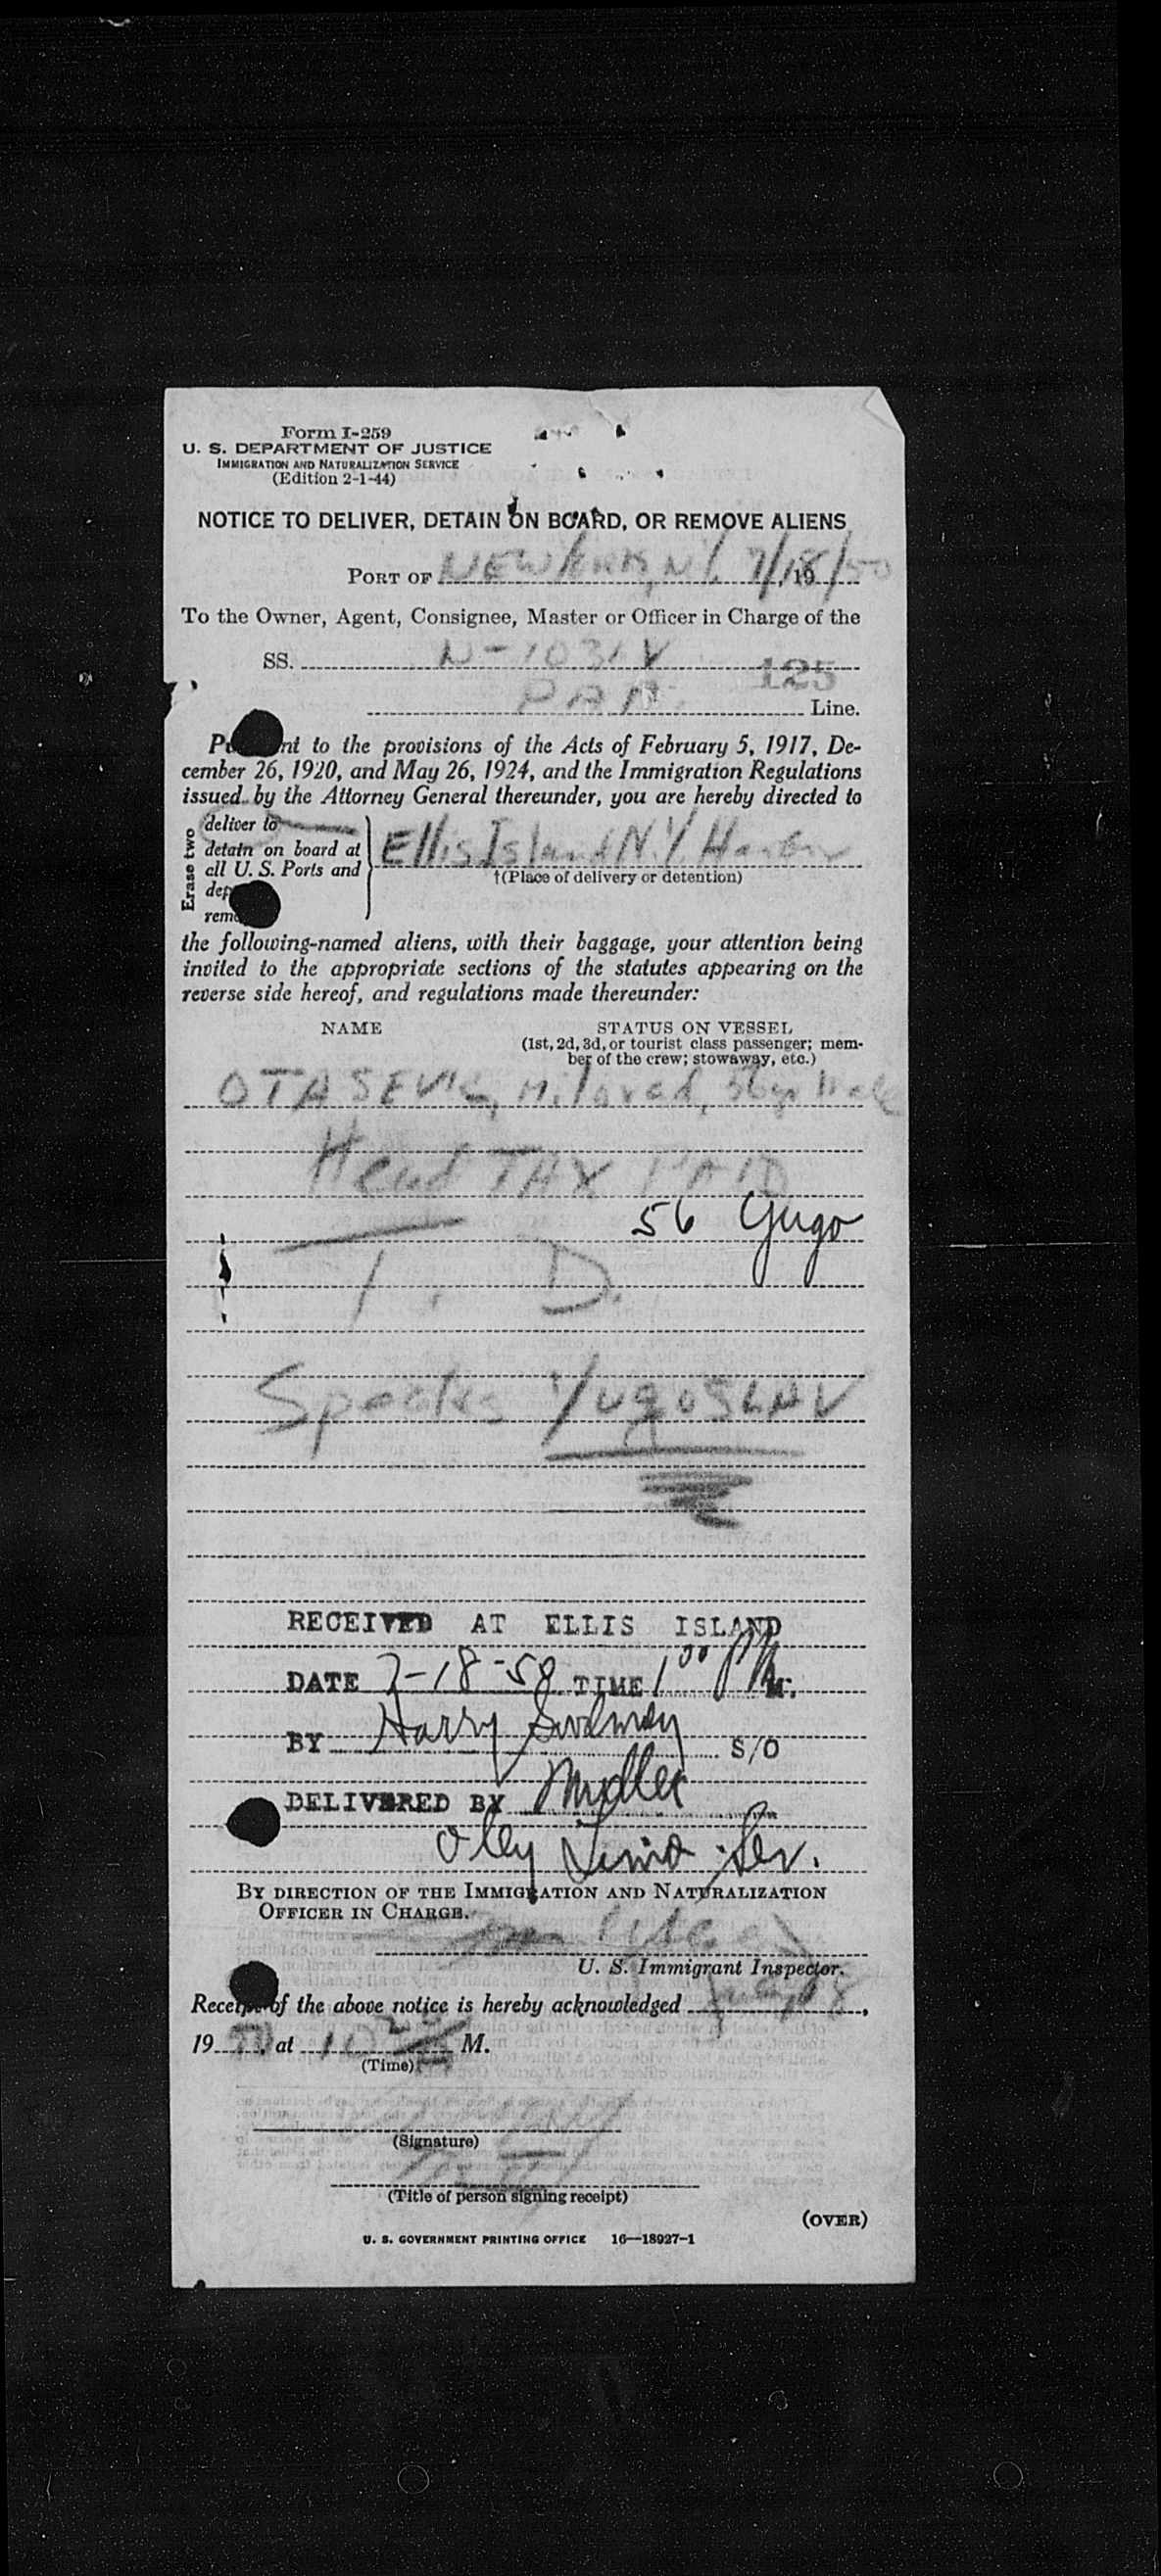 Form I-259
U. S. DEPARTMENT OF JUSTICE
IMMIGRATION AND NATURALIZATION SERVICE
(Edition 2-1-44)
NOTICE TO DELIVER, DETAIN ON BOARD, OR REMOVE ALIENS
PORT OF NEW YORK, N.Y. 7/18/, 1950
To the Owner, Agent, Consignee, Master or Officer in Charge of the
SS. N-1031V
125
PAA Line.
nt to the provisions of the Acts of February 5, 1917, De-
cember 26, 1920, and May 26, 1924, and the Immigration Regulations
issued by the Attorney General thereunder, you are hereby directed to
Erase two
deliver to
detain on board at
all U. S. Ports and
dep
remo
Ellis Island N.Y. Harbor
†(Place of delivery or detention)
the following-named aliens, with their baggage, your attention being
invited to the appropriate sections of the statutes appearing on the
reverse side hereof, and regulations made thereunder:
NAME STATUS ON VESSEL
(1st, 2d, 3d, or tourist class passenger; mem-
ber of the crew; stowaway, etc.)
OTASEVIC, Milorad, Male
Head TAX PAID
56 Yugo
T. D.
Speaks YugoSLAV
RECEIVED AT ELLIS ISLAND
DATE 7-18-50 TIME 1 00 P M.
BY Harry S/O
DELIVERED BY
BY DIRECTION OF THE IMMIGRATION AND NATURALIZATION
OFFICER IN CHARGE.
U. S. Immigrant Inspector.
Receipt of the above notice is hereby acknowledged July 18,
1950, at 10 M.
(Time)
(Signature)
(Title of person signing receipt)
(OVER)
U. S. GOVERNMENT PRINTING OFFICE 16—18927-1